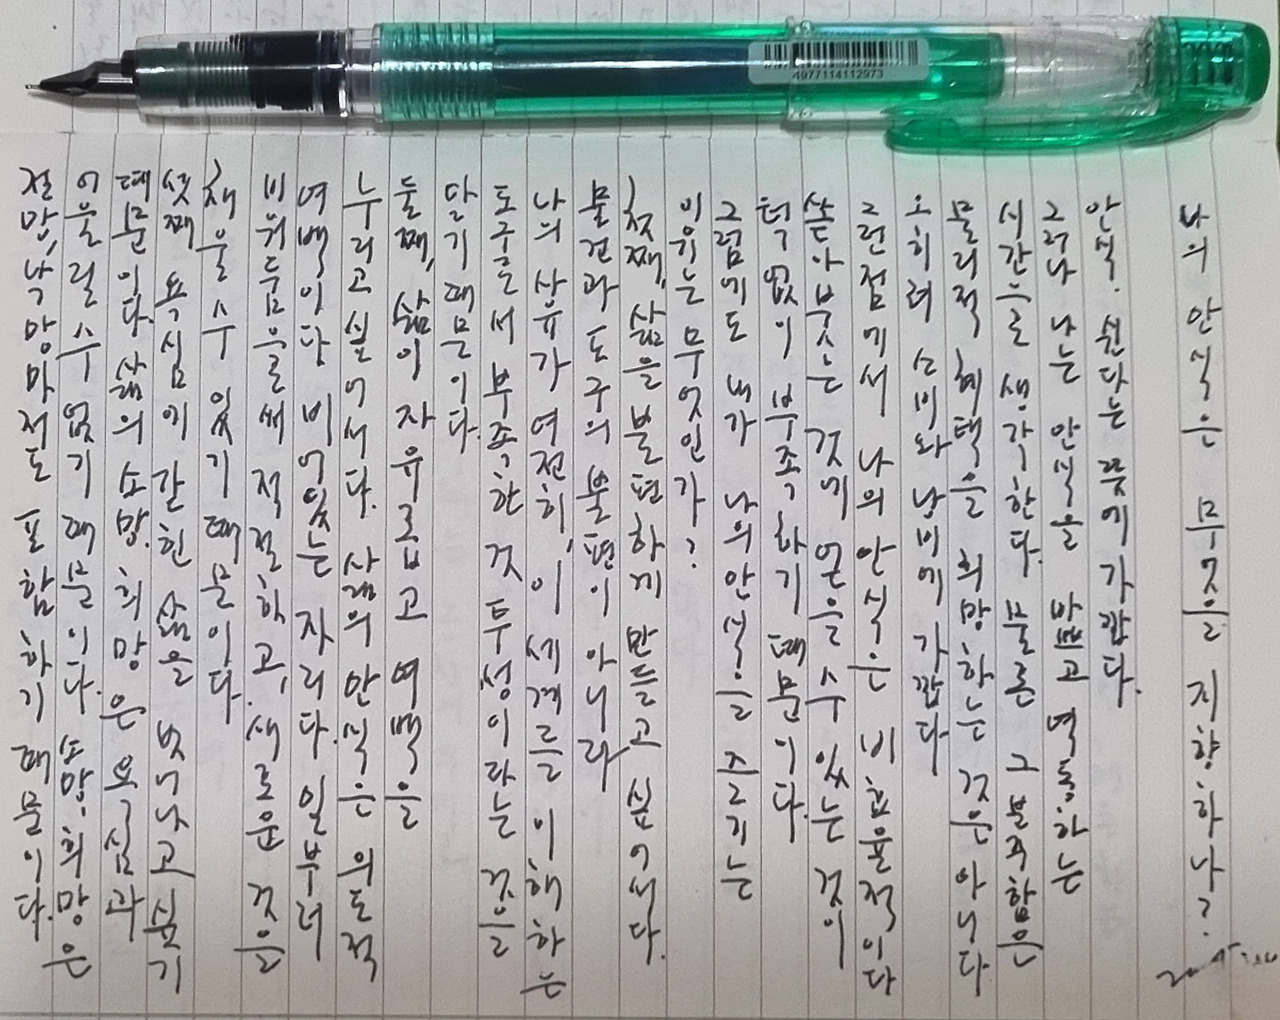 4977114112973
나의 안식은 무엇을 지향하나?
안식. 쉰다는 뜻에 가깝다.
그러나 나는 안식을 바쁘고 역동하는
시간으로 생각한다. 물론 그 분주함은
물리적 혜택을 희망하는 것은 아니다
오히려 소비와 낭비에 가깝다
그런 점에서 나의 안식은 비효율적이다
쏟아붓는 것에 얻을 수 있는 것이
턱없이 부족하기 때문이다.
그럼에도 내가 나의 안식을 즐기는
이유는 무엇인가?
첫째, 삶을 불편하게 만들고 싶어서다.
물건과 도구의 불편이 아니라
나의 사유가 여전히, 이 세계를 이해하는
도구로서 부족한 것 투성이라는 것을
알기 때문이다.
둘째, 삶이 자유롭고 여백을
누리고 싶어서다. 삶의 안식은 의도적
여백이다 비어있는 자리다. 일부러
비워둠으로써 적절하고, 새로운 것을
채울 수 있기 때문이다.
셋째 욕심에 갇힌 삶을 벗어나고 싶기
때문이다. 삶의 소망. 희망은 욕심과
어울릴 수 없기 때문이다. 소망, 희망은
절망, 낙망마저도 포함하기 때문이다.